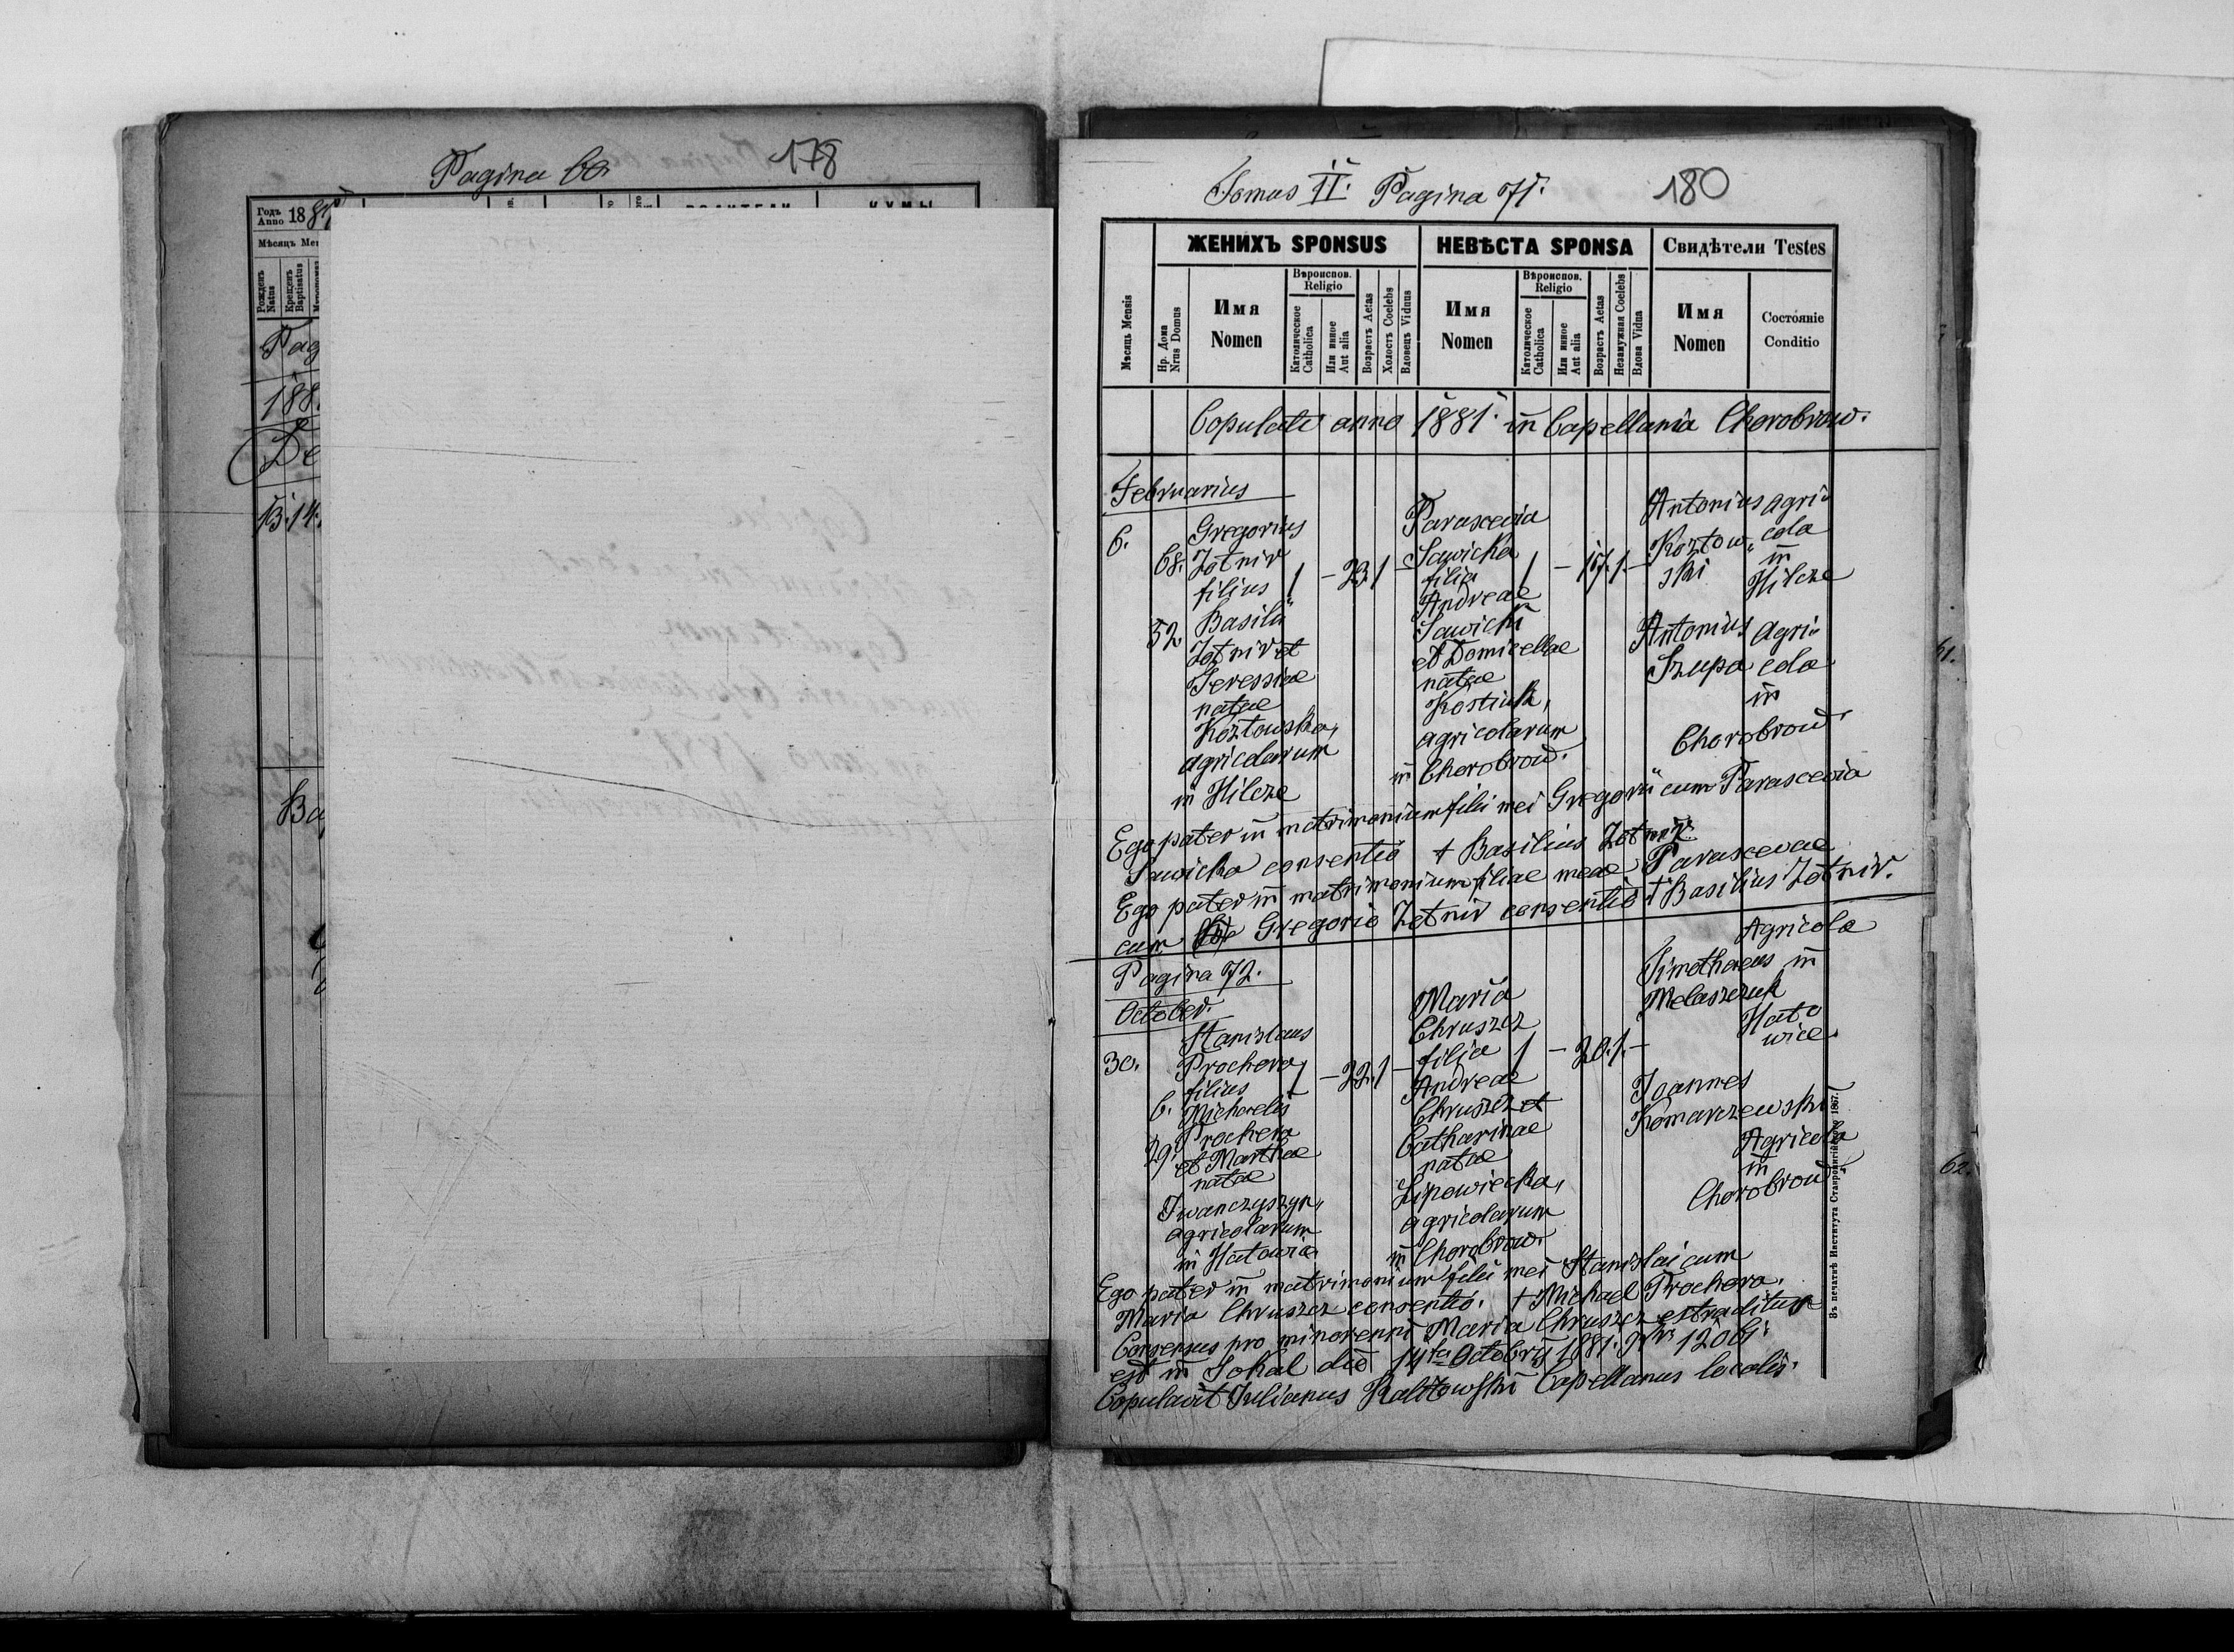 Pagina 60
178
Годъ
Anno 188
Мѣсяцъ Men
Рожденъ
Natus
Крещенъ
Baptisatus
РОДИТЕЛИ
КУМЫ
Pag
188
De
13. 14.
Ba
Tomus II. Pagina 71.
180
Мѣсяцъ Mensis
Нр. Дома
Nrus Domus
ЖЕНИХЪ SPONSUS
НЕВѢСТА SPONSA
Свидѣтели Testes
Имя
Nomen
Вѣроиспов.
Religio
Католическое
Catholica
Или инное
Aut alia
Возрастъ Aetas
Холостъ Coelebs
Вдовецъ Viduus
Имя
Nomen
Вѣроиспов.
Religio
Католическое
Catholica
Или инное
Aut alia
Возрастъ Aetas
Незамужная Coelebs
Вдова Vidua
Имя
Nomen
Состояніе
Conditio
Copulati anno 1881. in Capellania Chorobrow.
Februarius
6.
68.
52
Gregorius
Żotnir
filius
Basilii
Żotnir et
Teressiae
natae
Kozłowska,
agricolarum
in Hilcze
1 – 23. 1 –
Parascevia
Sawicka
filia
Andreae
Sawicki
et Domicellae
natae
Kostiuk,
agricolarum
in Chorobrow.
1 – 17. 1. –
Antonius
Kozłow„
ski
agri„
cola
in
Hilcze
Antonius
Szupa
agri„
cola
in
Chorobrow.
Ego pater in matrimonium filii mei Gregorii cum Parascevia
Sawicka consentio + Basilius Żotnir.
Ego pater in matrimonium filiae meae Parascevae
cum Gregorio Żotnir consentio + Basilius Żotnir.
Pagina 72.
October.
30.
6.
29.
Stanislaus
Prochera
filius
Michaelis
Prochera
et Marthae
natae
Iwanczyszyn,
agricolarum
in Hatowic
1 – 22. 1 –
Maria
Chruszcz
filia
Andreae
Chruszcz et
Catharinae
natae
Lipowiecka,
agricolarum
in Chorobrow.
1 – 20. 1. –
Timothaeus
Melaszczuk
Agricola
in
Hato
wice.
Joannes
Komarzewski
Agricola
in
Chorobrow
Ego pater in matrimonium filii mei Stanislai cum
Maria Chruszcz consentio. + Michael Prochera.
Consensus pro minorenni Maria Chruszcz extraditus
est in Sokal die 14ta Octobris 1881.
Copulavit Julianus Capellanus localis.
Въ печатнѣ Института Ставропигійского 1867.
61.
62.